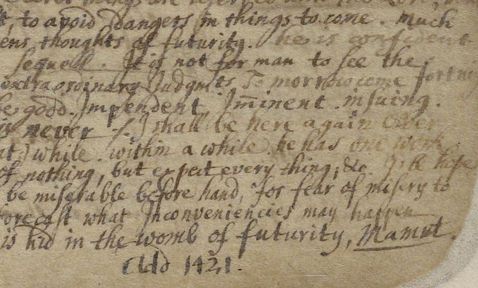 to avoid dangers in things to come. Much
ens thoughts of futurity. he is confident
sequell. It is not for man to see the
extraordinary Judgmts To morrow come fortni
be good. Impendent Iminent. insuing.
never I shall be here again over
while. within a while. he has one work
of nothing, but expect every thing, &c I'll hope
be miserable before hand, for fear of misery to
forecast what Inconveniencies may happen
is hid in the womb of futurity, Mamut.
Add 1421.